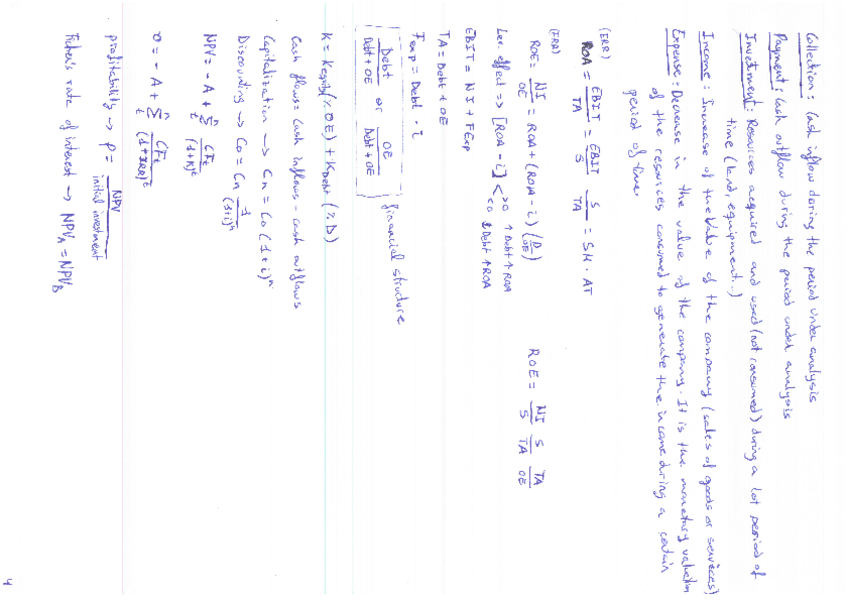 Collection: Cash inflow during the period under analysis
Payment: Cash outflow during the period under analysis
Investment: Resources acquired and used (not consumed) during a lot period of
time (land, equipment...)
Income: Increase of the value of the company (sales of goods or services)
Expense: Decrease in the value of the company. It is the monetary valuation
of the resources consumed to generate the income during a certain
period of time
(ERR)
ROA = EBIT/TA = EBIT/S · S/TA = SM · AT
(FRR)
ROE = NI/OE = ROA + (ROA - i) (D/OE) ROE = NI/S S/TA TA/OE
Lev. effect => [ROA - i] >0 ↑Debt ↑ROA
<0 ↕Debt ↑ROA
EBIT = NI + FExp
TA = Debt + OE
Fexp = Debt · i
Debt/(Debt + OE) or OE/(Debt + OE) financial structure
K = Kequity (% OE) + Kdebt (% D)
Cash flows = Cash inflows - cash outflows
Capitalization → Cn = Co (1+i)^n
Discounting → Co = Cn 1/(1+i)^n
NPV = - A + Σ CFt/(1+K)^t
0 = - A + Σ CFt/(1+IRR)^t
profitability → p = NPV/initial investment
Fisher's rate of interest → NPV_A = NPV_B
4